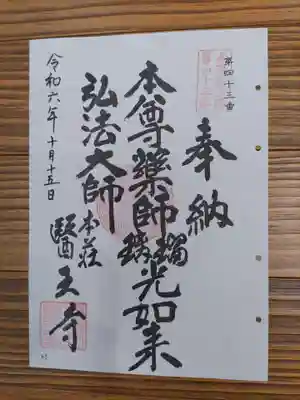 第四十三番
奉納
本尊薬師瑠璃光如来
弘法大師
本荘
醫王寺
令和六年十月十五日